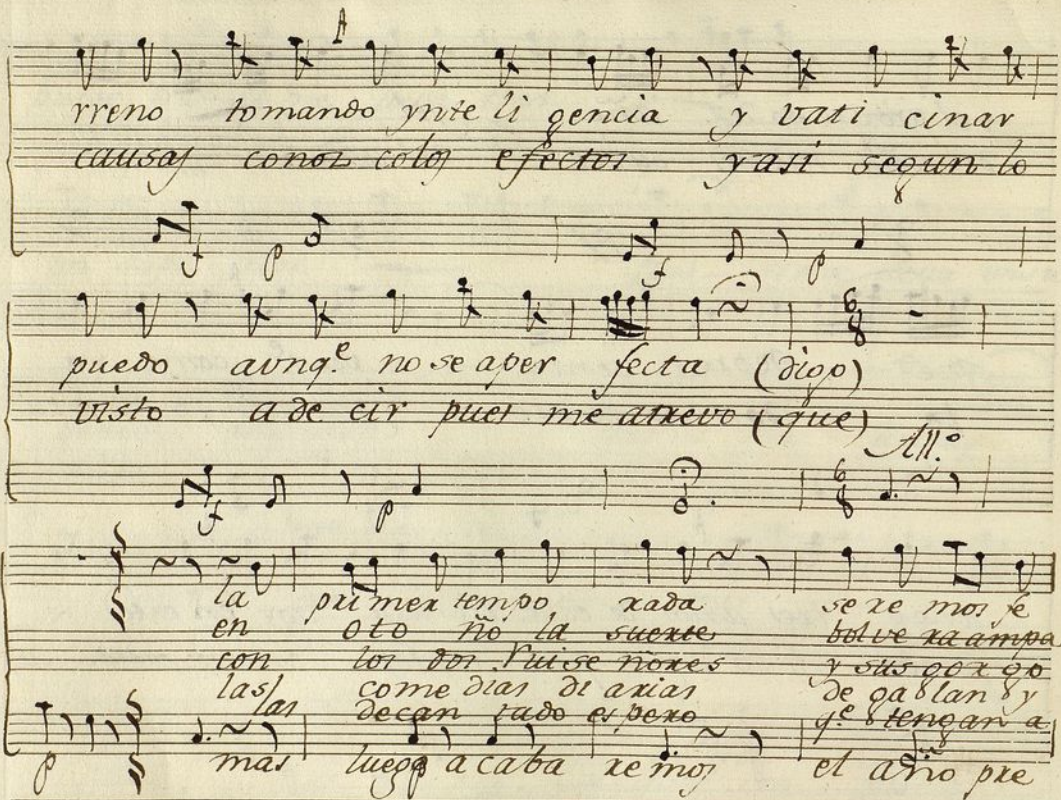 rreno tomando ynte li gencia y vati cinar
causas conoz colos efectos y asi segun lo
f p f p
puedo aunq.e no se aper fecta (digo)
visto a de cir pues me atrevo (que)
All.o
f p
la primer tempo rada se re mos fe
en oto ño la suerte bolve ra ampa
con los dos Ruise ñores y sus gor go
las come dias di arias de ga lan y
las decan tado es pero q.e tengan a
p mas luego acaba re mos el año pre